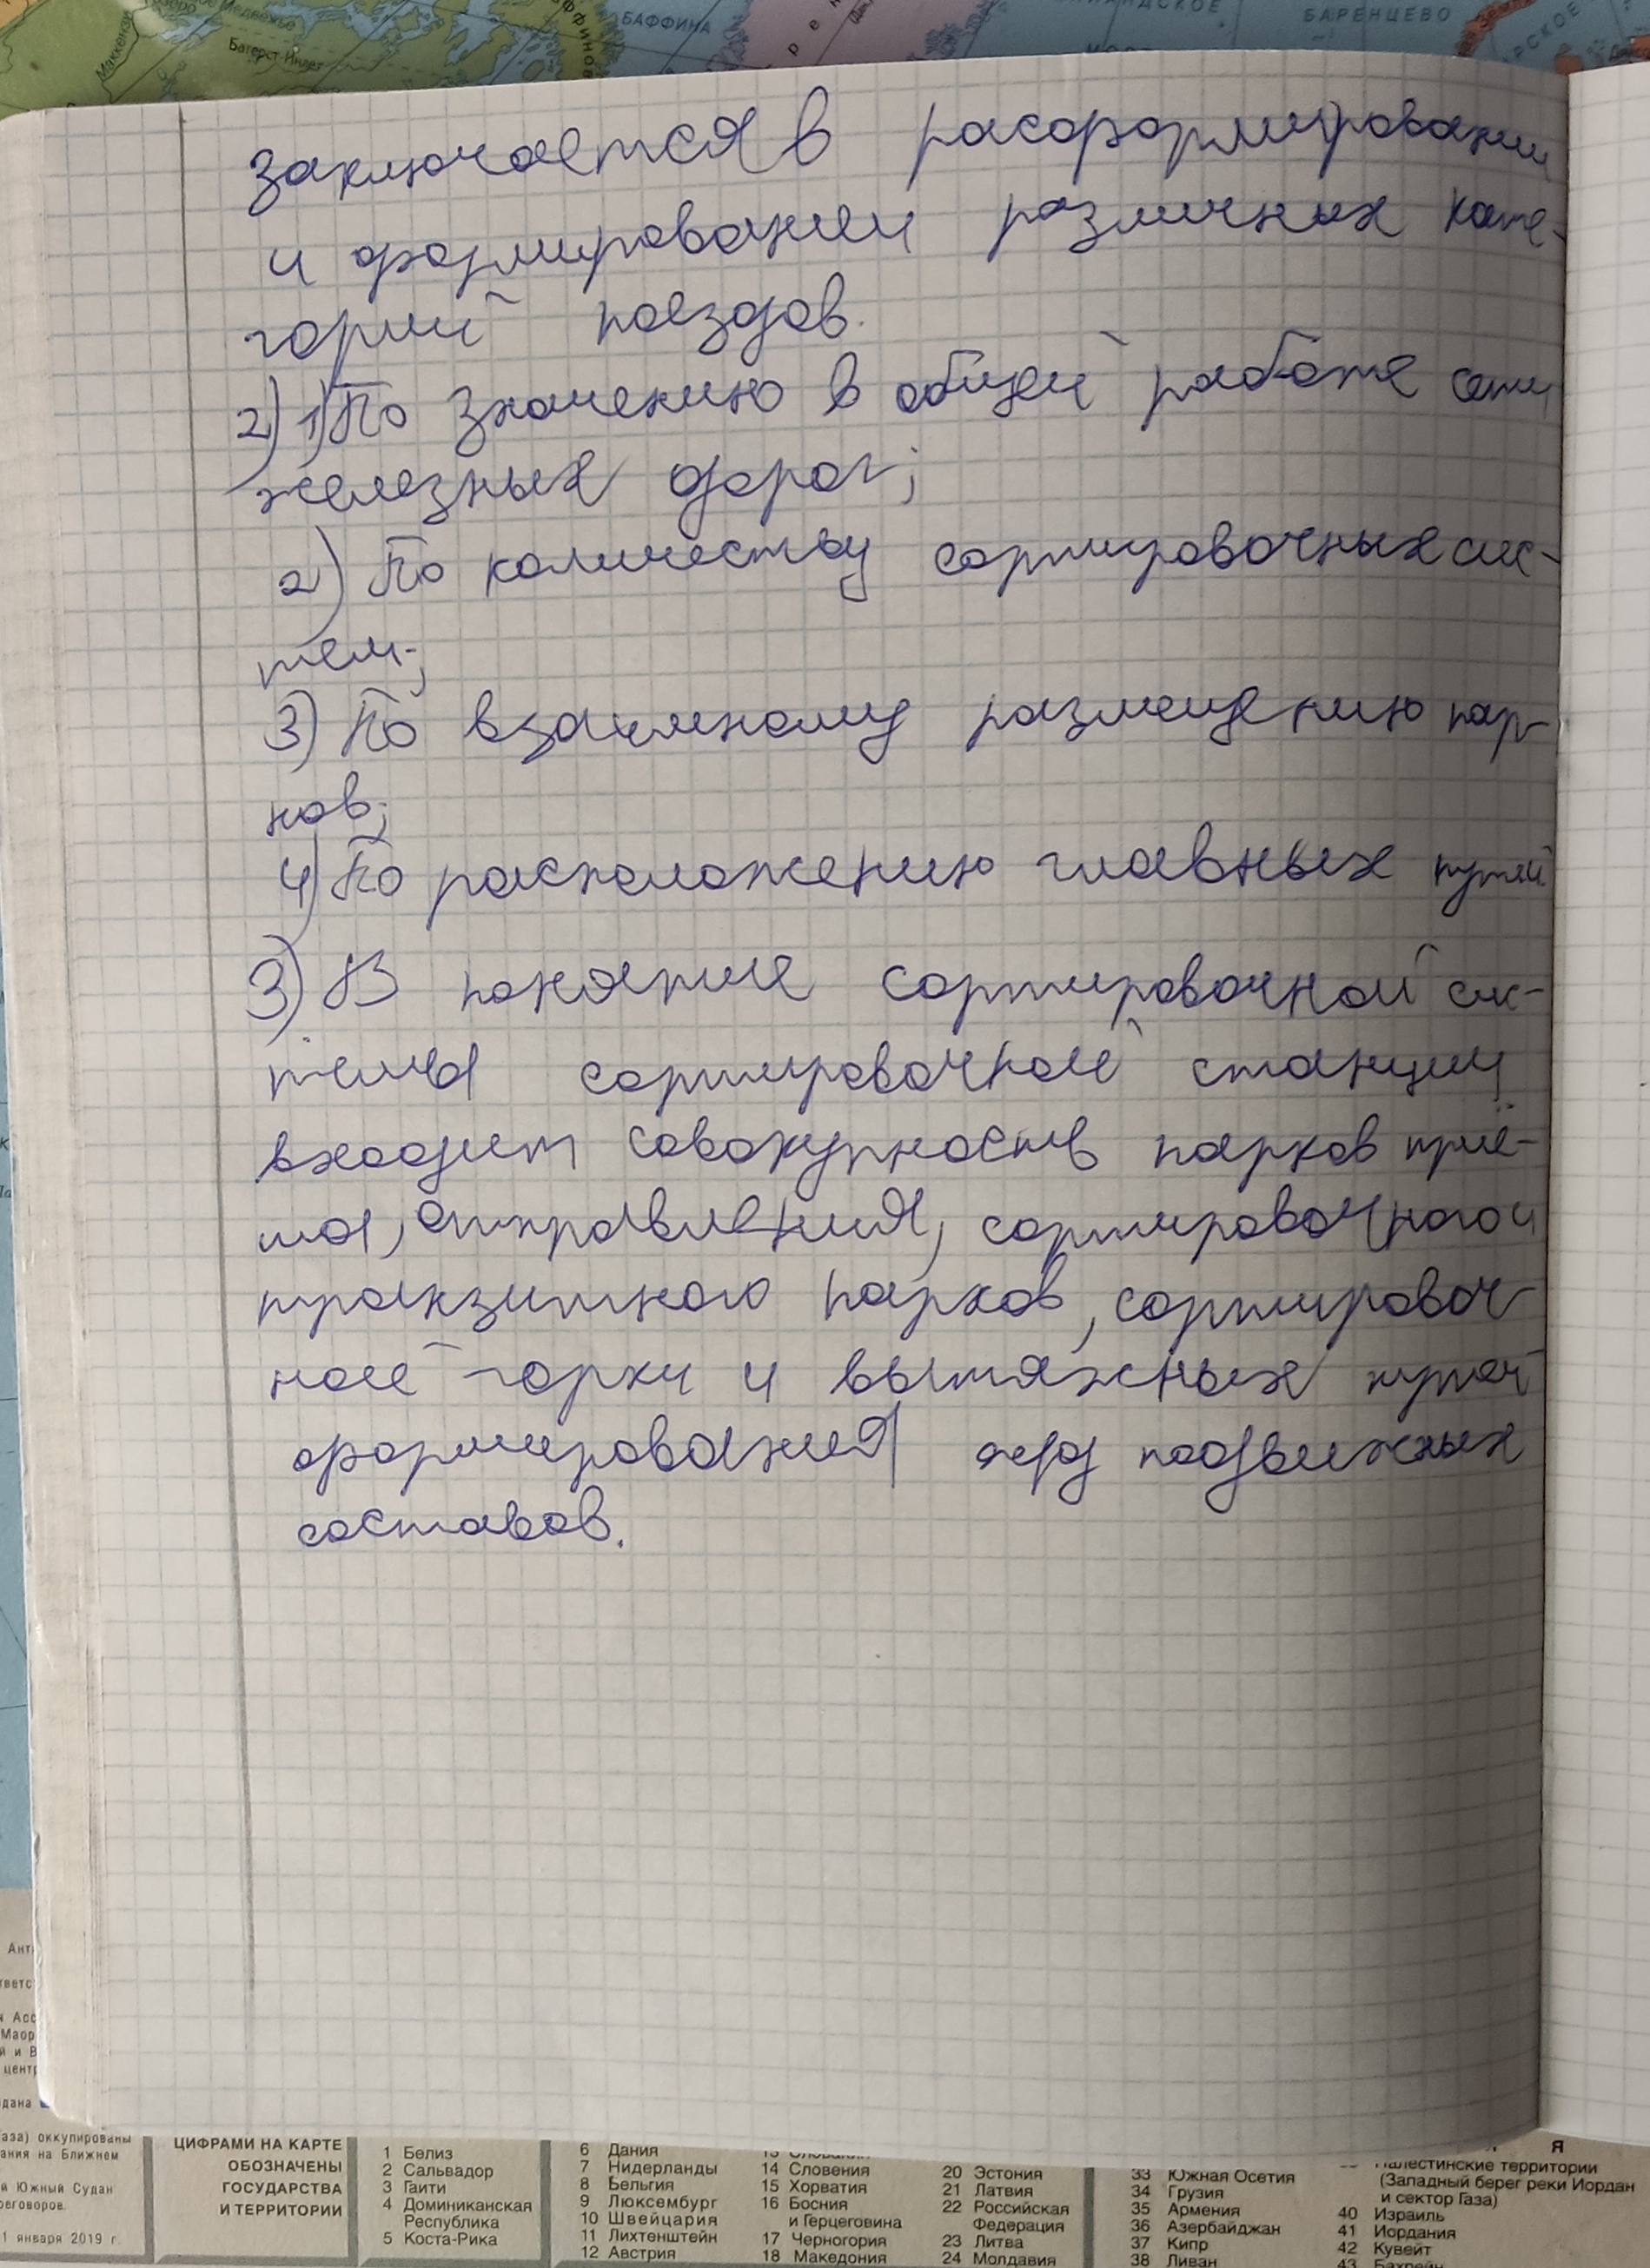 Маккензи
Медвежье
Батерст-Инлет
БАФФИНА
МОРЕ
БАРЕНЦЕВО
заключается в расформировании
и формировании различных кате-
горий поездов.
2) 1) По значению в общей работе сети
железных дорог;
2) По количеству сортировочных сис-
тем;
3) По взаимному размещению пар-
ков;
4) По расположению главных путей
3) В понятие сортировочной сис-
темы сортировочной станции
входит совокупность парков приё-
ма, отправления, сортировочного и
транзитного парков, сортировоч
ной горки и вытяжных путей
формирования подвижных
составов.
ЦИФРАМИ НА КАРТЕ
ОБОЗНАЧЕНЫ
ГОСУДАРСТВА
И ТЕРРИТОРИИ
1 Белиз
2 Сальвадор
3 Гаити
4 Доминиканская
Республика
5 Коста-Рика
6 Дания
7 Нидерланды
8 Бельгия
9 Люксембург
10 Швейцария
11 Лихтенштейн
12 Австрия
14 Словения
15 Хорватия
16 Босния
и Герцеговина
17 Черногория
18 Македония
20 Эстония
21 Латвия
22 Российская
Федерация
23 Литва
24 Молдавия
33 Южная Осетия
34 Грузия
35 Армения
36 Азербайджан
37 Кипр
38 Ливан
Палестинские территории
(Западный берег реки Иордан
и сектор Газа)
40 Израиль
41 Иордания
42 Кувейт
43 Бахрейн
оккупированы
на Ближнем
Южный Судан
1 января 2019 г.